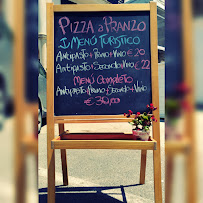 PIZZA a PRANZO
IL MENÚ TURISTICO
ANTIPASTO + PRIMO + VINO € 20
ANTIPASTO + SECONDO + VINO € 22
MENÚ COMPLETO
ANTIPASTO / PRIMO / SECONDO + VINO
€ 30,00